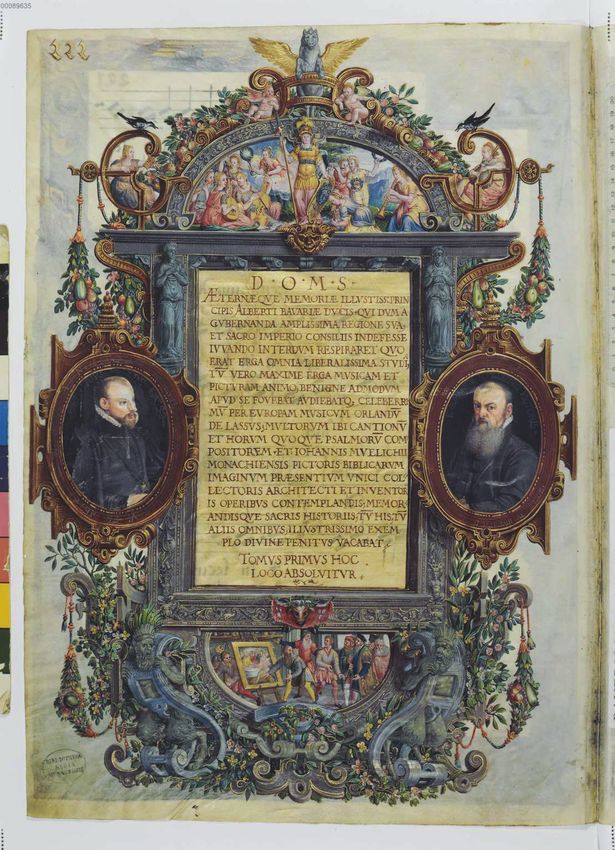 00089635
222
D·O·M·S·
ÆTERNÆQVE MEMORIÆ ILLVSTISS:PRIN
CIPIS ALBERTI BAVARIÆ DVCIS·QVI DVM A
GVBERNANDA AMPLISSIMA REGIONE SVA,
ET SACRO IMPERIO CONSILIIS INDEFESSE
IVVANDO INTERDVM RESPIRARET QVO
ERAT ERGA OMNIA LIBERALISSIMA STVDIA,
TV̄ VERO MAXIME ERGA MVSICAM ET
PICTVRAM ANIMO, BENIGNE ADMODVM
APVD SE FOVEBAT AVDIEBATQ; CELEBERRI
MV̄ PER EVROPAM MVSICVM ORLANDV̄
DE LASSVS; MVLTORVM IBI CANTIONV̄
ET HORVM QVOQVE PSALMORV̄ COM
POSITOREM·ET·IOHANNIS MVELICHII
MONACHIENSIS PICTORIS BIBLICARVM
IMAGINVM PRÆSENTIVM VNICI COL
LECTORIS ARCHITECTI ET INVENTOR
IS OPERIBVS CONTEMPLANDIS; MEMOR
ANDISQVE SACRIS HISTORIIS; TV̄ HIS, TV̄
ALIIS OMNIBVS, ILLVSTRISSIMO EXEM
PLO DIVINE PENITVS VACABAT,
TOMVS PRIMVS HOC
LOCO ABSOLVITVR,